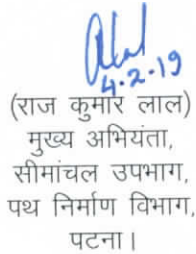 4.2.19
(राज कुमार लाल)
मुख्य अभियंता,
सीमांचल उपभाग,
पथ निर्माण विभाग,
पटना।